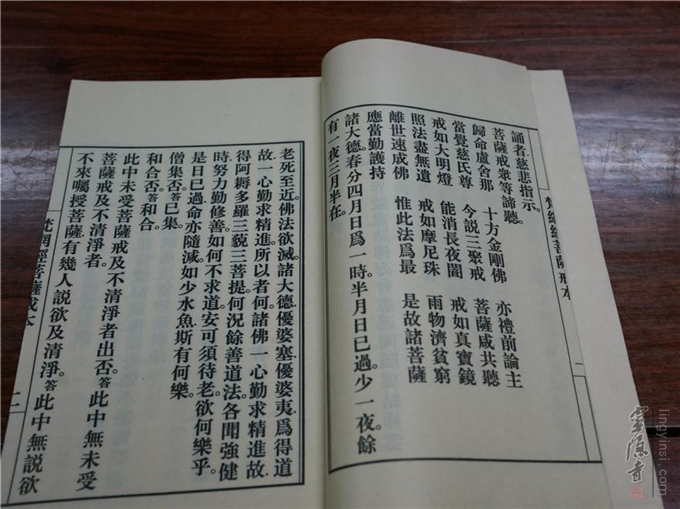 誦者慈悲指示。
菩薩戒衆等諦聽。
歸命盧舍那　十方金剛佛　亦禮前論主
當覺慈氏尊　今說三聚戒　菩薩咸共聽
戒如大明燈　能消長夜闇　戒如真寶鏡
照法盡無遺　戒如摩尼珠　雨物濟貧窮
離世速成佛　惟此法爲最　是故諸菩薩
應當勤護持
諸大德。春分四月日爲一時。半月日已過。少一夜。餘
有一夜三月半在。
老死至近。佛法欲滅。諸大德。優婆塞。優婆夷。爲得道
故。一心勤求精進。所以者何。諸佛一心勤求精進故。
得阿耨多羅三藐三菩提。何況餘善道法。各聞強健
時。努力勤修善。如何不求道。安可須待老。欲何樂乎。
是日已過。命亦隨減。如少水魚。斯有何樂。
僧集否。答已集。
和合否。答和合。
此中未受菩薩戒及不清淨者出否。答此中無未受
菩薩戒及不清淨者。
不來囑授菩薩有幾人說欲及清淨。答此中無說欲
梵網經菩薩戒本
二
梵網經菩薩戒本
二
靈隱寺
lingyinsi.com